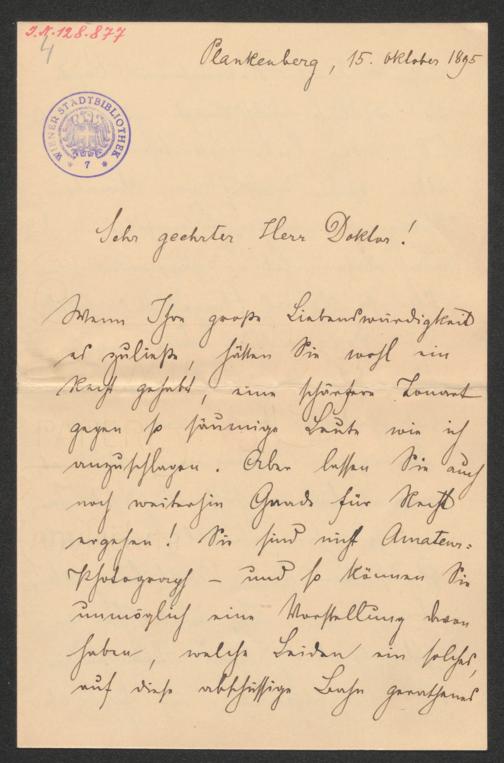 I.N. 128.877
4
Plankenberg, 15. Oktober 1895
WIENER STADTBIBLIOTHEK
* 7 *
Sehr geehrter Herr Doktor!
Wenn Ihre große Liebenswürdigkeit
es zuließe, hätten Sie wohl ein
Recht gehabt, eine schärfere Tonart
gegen so säumige Leute wie ich
anzuschlagen. Aber lassen Sie auch
noch weiterhin Gnade für Recht
ergehen! Sie sind nicht Amateur-
Photograph – und so können Sie
unmöglich eine Vorstellung davon
haben, welche Leiden ein solches,
auf diese abschüssige Bahn gerathenes